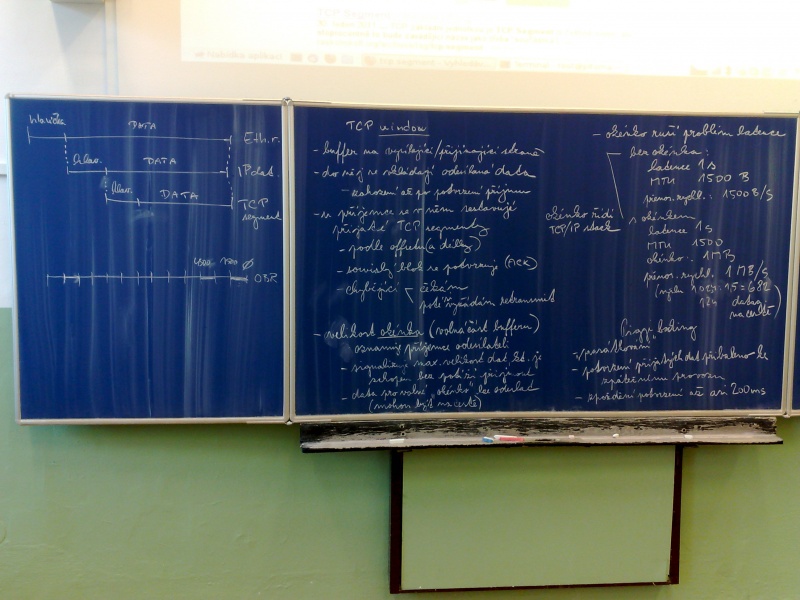 hlavička DATA
Eth. r.
hlav. DATA
IP dat.
hlav. DATA
TCP
segment
1500 0
OBR
TCP window
- buffer na vysílající/přijímající straně
- do něj se vkládají odesílaná data
- zahození až po potvrzení příjmu
- u příjemce se v něm sestavují
přijaté TCP segmenty
- podle offsetu (a délky)
- souvislý blok se potvrzuje (ACK)
- chybějící čekám
poté vyžádám retransmit
- velikost okénka (volná část bufferu)
oznamuje příjemce odesílateli
- signalizuje max. velikost dat, kt. je
schopen bez potíží přijmout
- data pro volné "okénko" lze odeslat
(mohou být na cestě)
- okénko ruší problém latence
bez okénka:
latence 1s
MTU 1500 B
přenos. rychl.: 1500 B/s
okénko řídí
TCP/IP stack
s okénkem
latence 1s
MTU 1500
okénko: 1MB
přenos. rychl. 1MB/s
datag.
na cestě)
Piggybacking
- potvrzení přijatých dat přibaleno ke
zpátečnímu provozu
- zpoždění potvrzení až asi 200ms